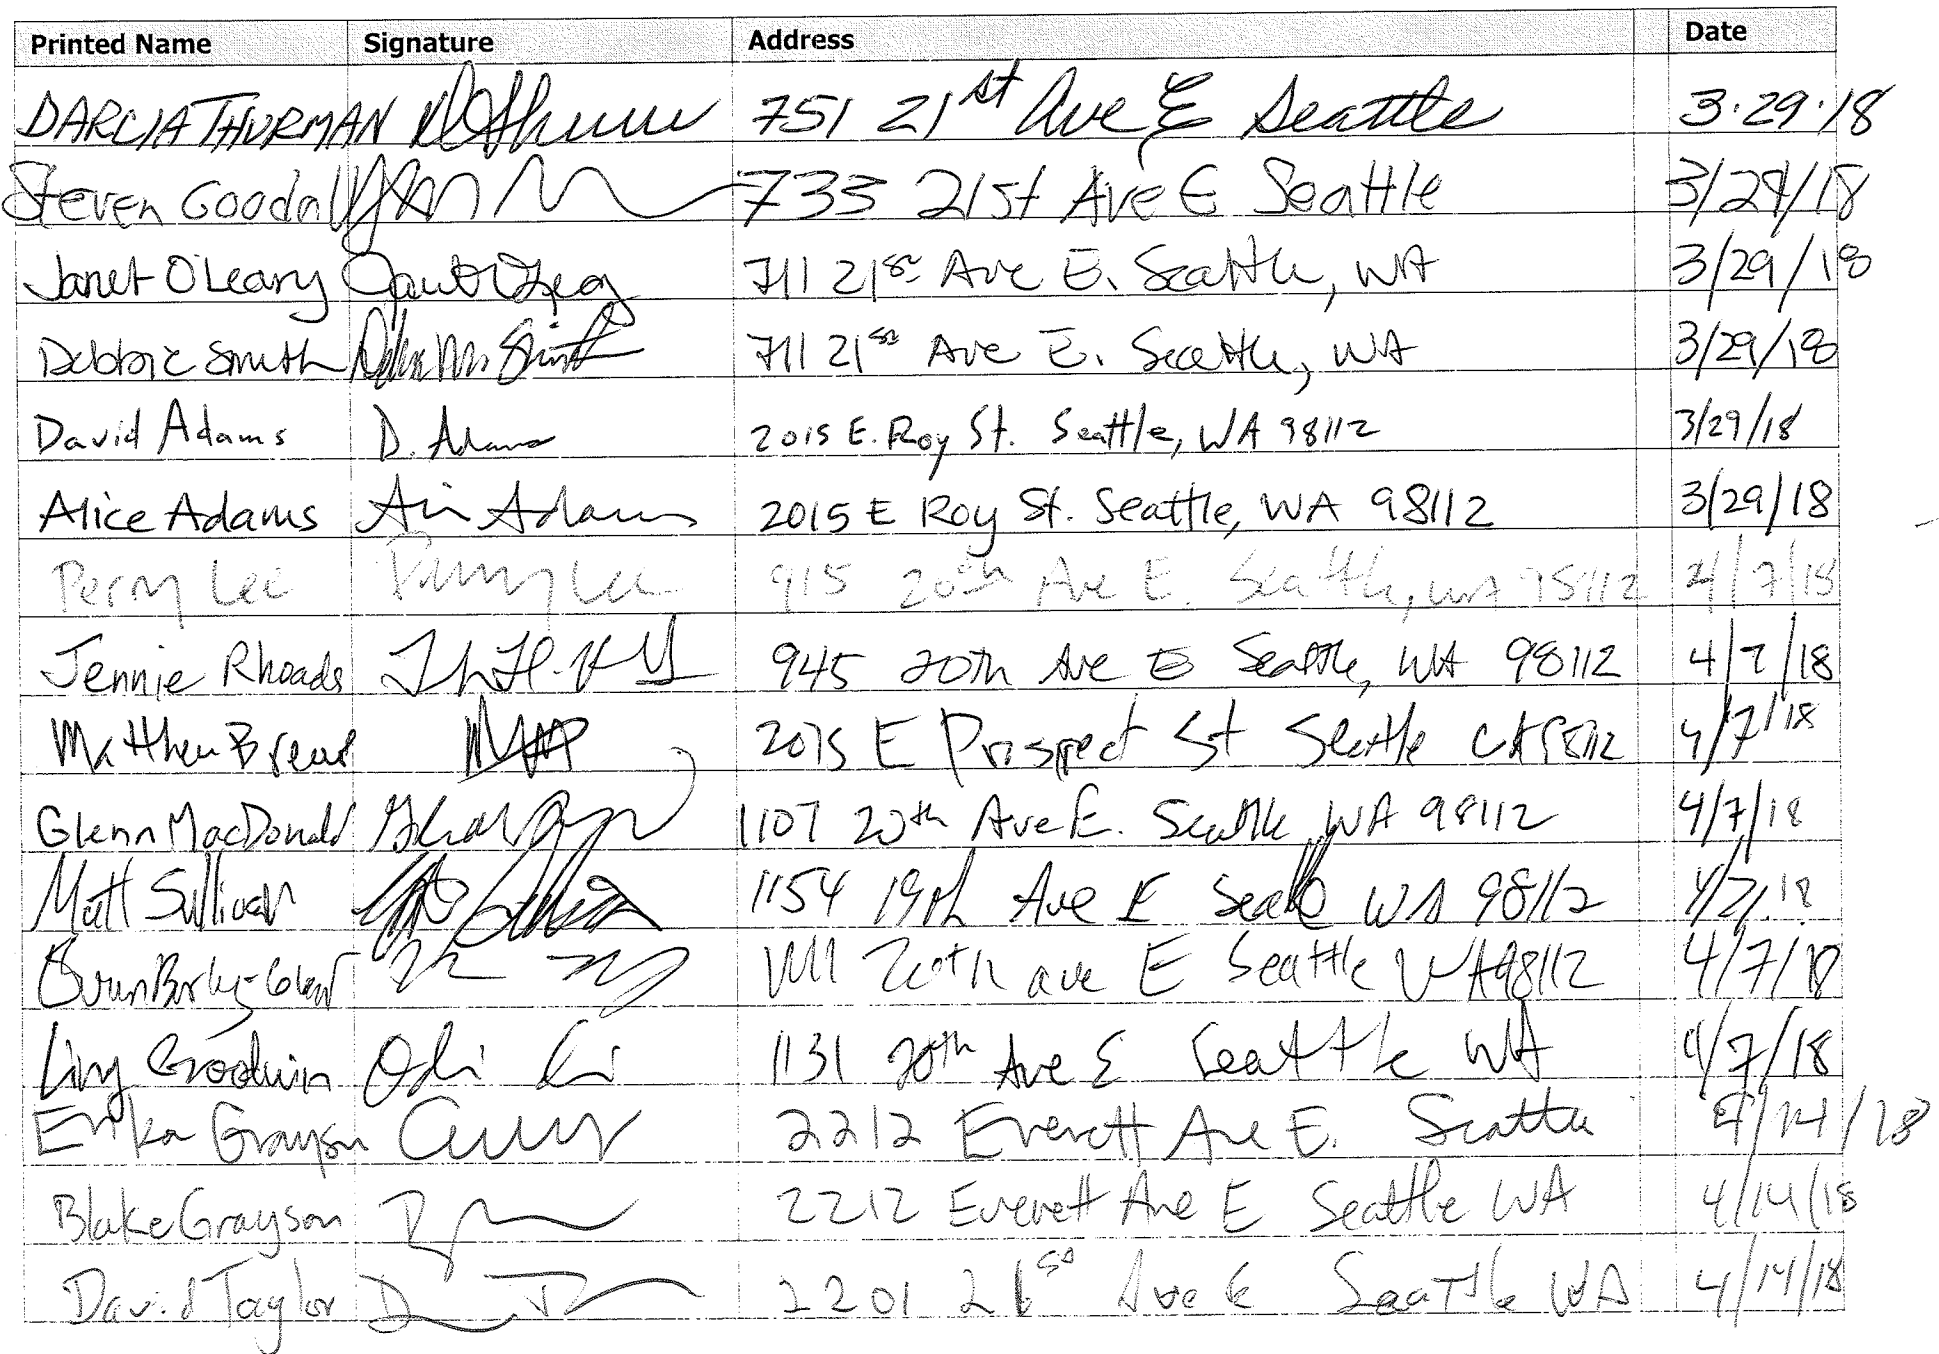 Printed Name Signature Address Date
DARCIA THURMAN 751 21st Ave E Seattle 3·29·18
Steven Goodall 733 21st Ave E Seattle 3/29/18
Janet O'Leary 711 21st Ave E. Seattle, WA 3/29/18
Debbie Smith 711 21st Ave E. Seattle, WA 3/29/18
David Adams D. Adams 2015 E. Roy St. Seattle, WA 98112 3/29/18
Alice Adams Adams 2015 E Roy St. Seattle, WA 98112 3/29/18
Perry Lee Perry Lee 915 20th Ave E. Seattle, WA 98112 4/7/18
Jennie Rhoads 945 20th Ave E Seattle, WA 98112 4/7/18
Matthew 2015 E Prospect St Seattle 98112 4/7/18
Glenn MacDonald 1107 20th Ave E. Seattle WA 98112 4/7/18
Matt Sullivan 1154 19th Ave E Seattle WA 98112 4/7/18
20th ave E Seattle WA 98112 4/7/18
Goodwin 1131 20th Ave E Seattle WA 4/7/18
Erika Grayson 2212 Everett Ave E. Seattle 4/14/18
Blake Grayson 2212 Everett Ave E Seattle WA 4/14/18
David Taylor 2201 21st Ave E Seattle WA 4/14/18